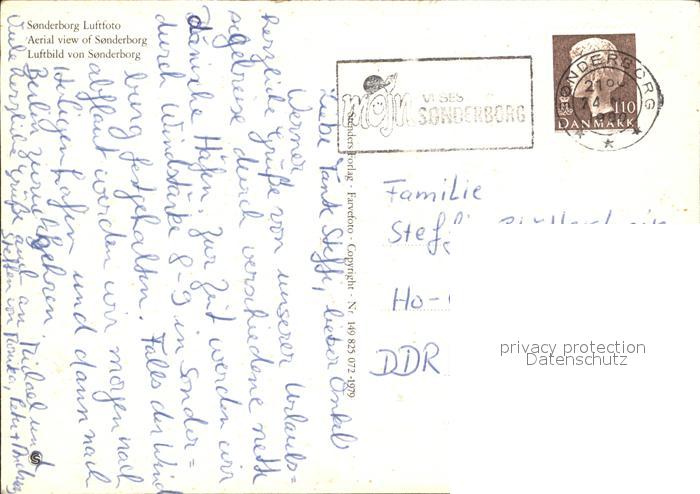 Sønderborg Luftfoto
Aerial view of Sønderborg
Luftbild von Sønderborg
Liebe Tante Steffi, lieber Onkel
Werner,
herzliche Grüße von unserer Urlaubs=
segelreise durch verschiedene nette
dänische Häfen. Zur Zeit werden wir
durch Windstärke 8-9 in Sonder=
burg festgehalten. Falls der Wind
abflaut werden wir morgen nach
Heiligenhafen und dann nach
Berlin zurückkehren.
Viele herzliche Grüße auch an Michael und
Steffen von Monika, Peter +
Forlag - Farvefoto - Copyright - Nr. 149 825 072 -1979
mojn
VI SES
SØNDERBORG
SØNDERBORG
110
DANMARK
Familie
Ho-
DDR
privacy protection
Datenschutz